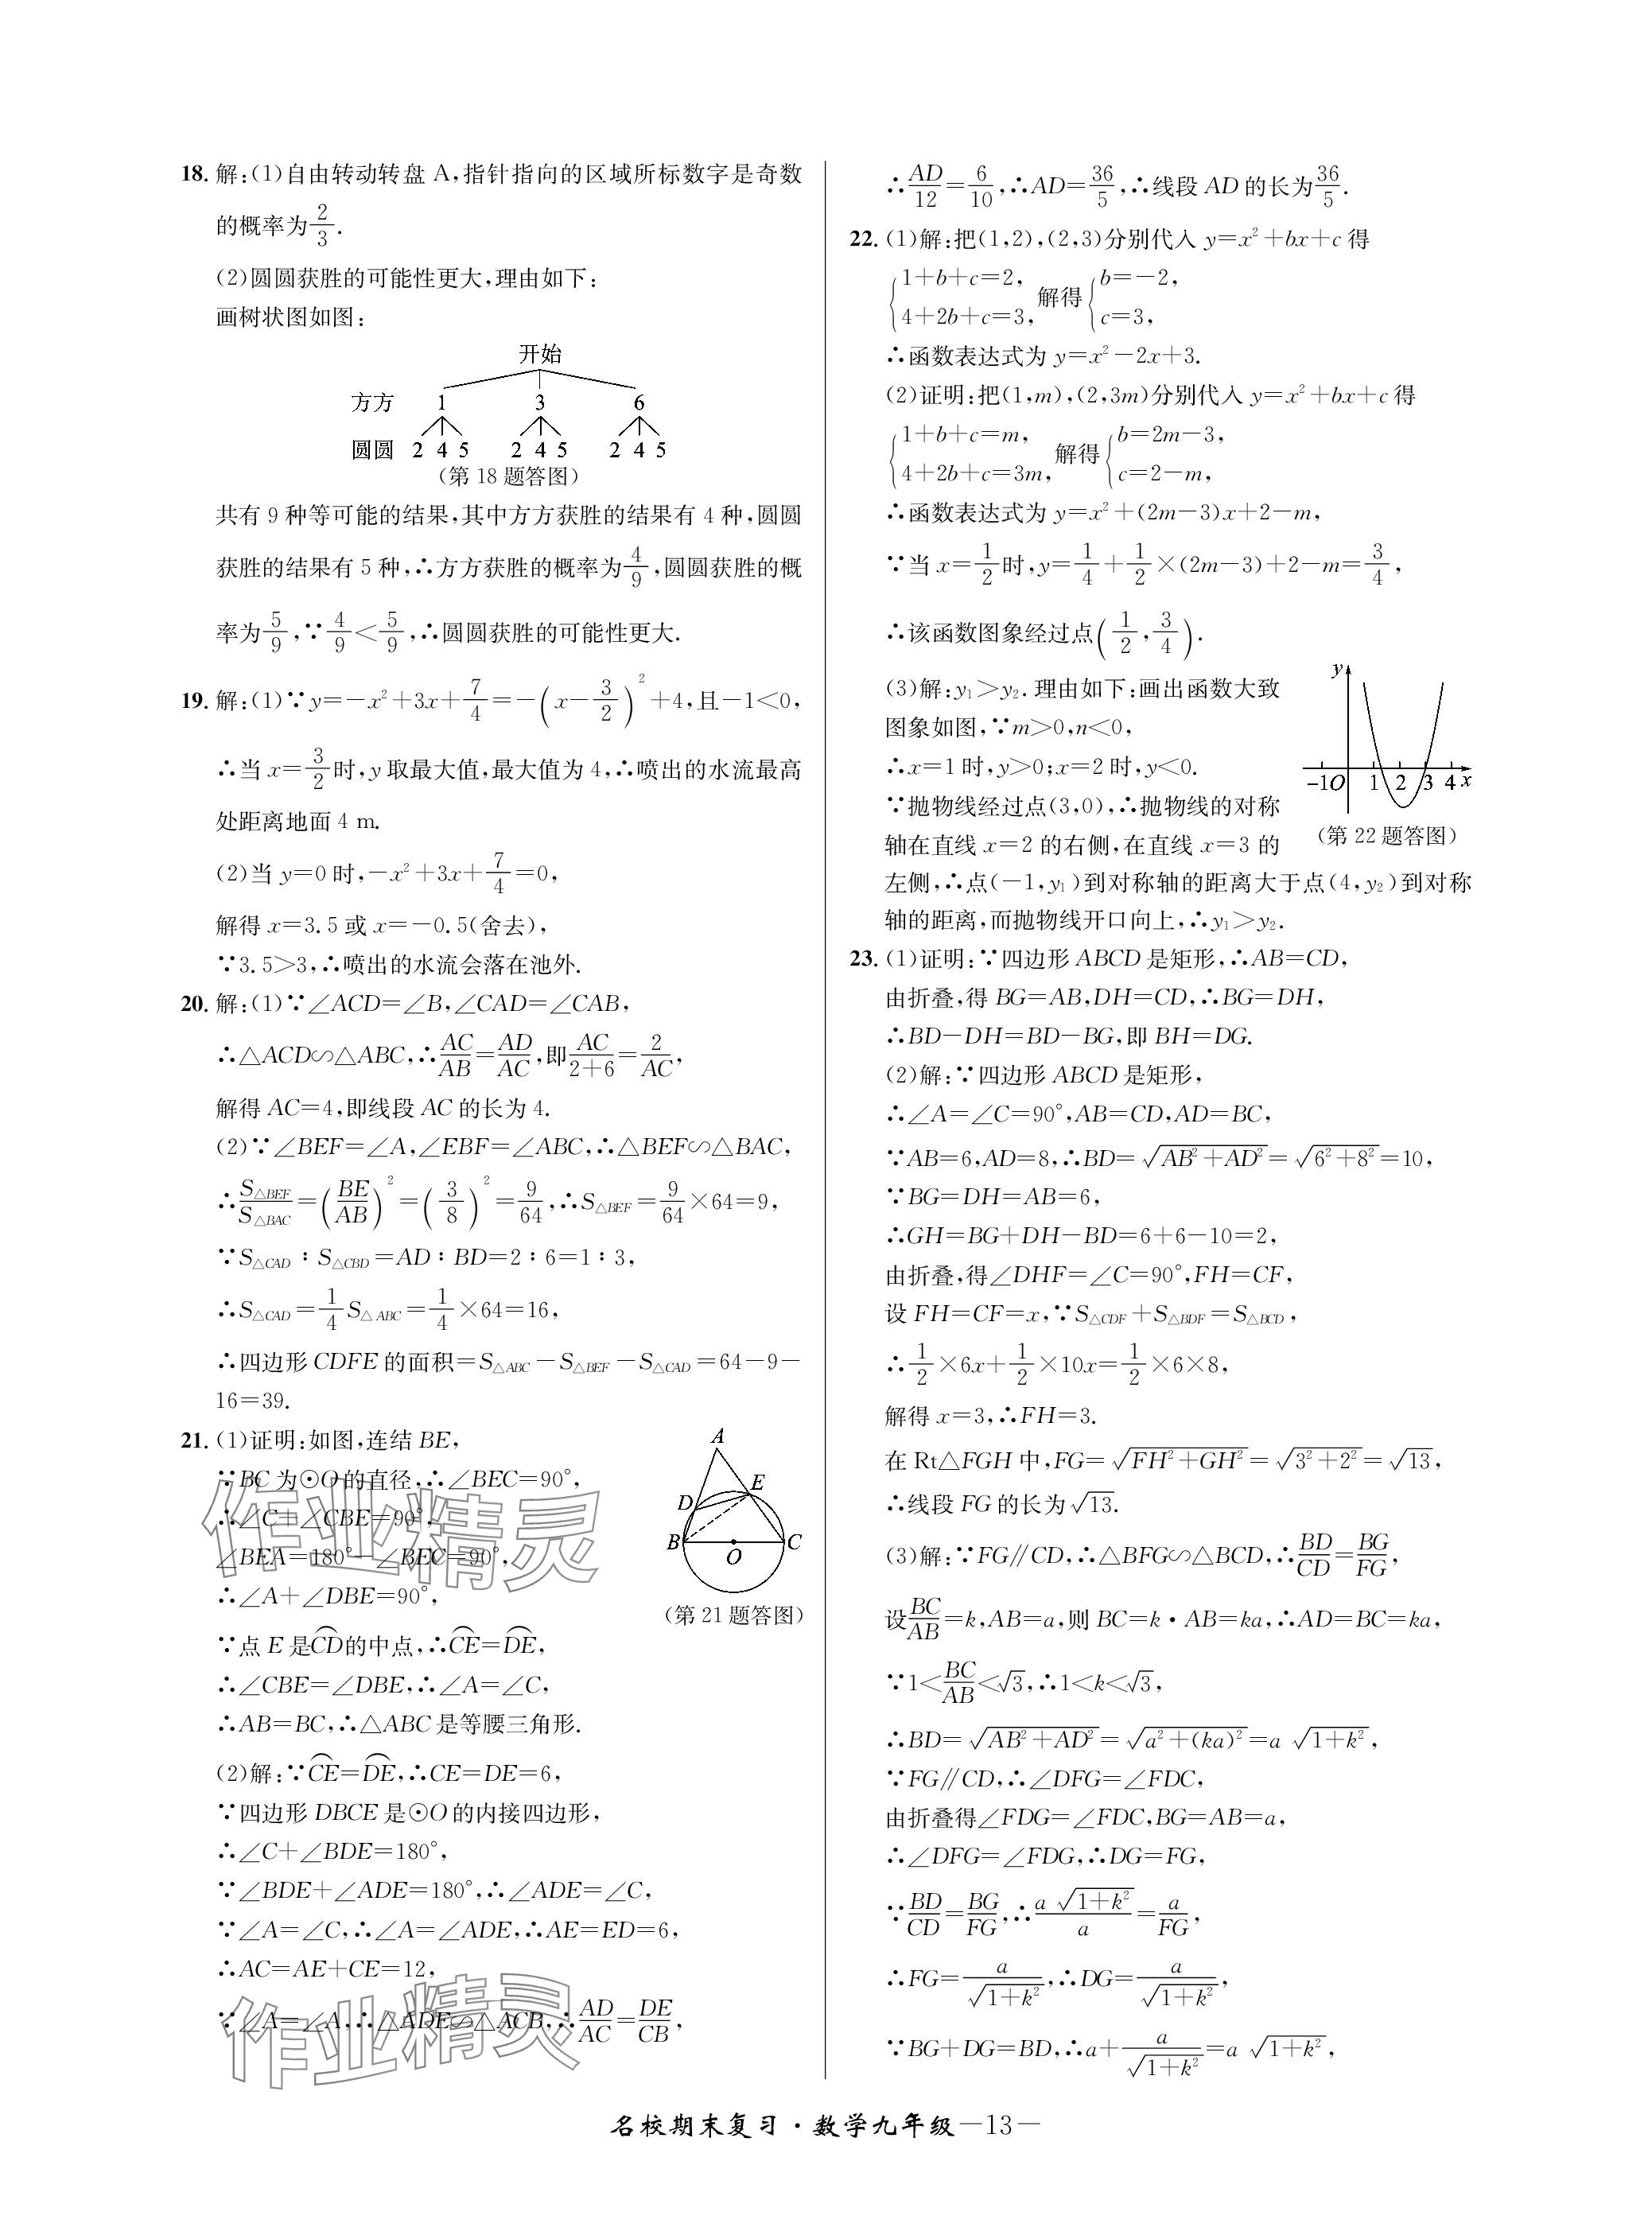 18. 解:(1)自由转动转盘 A,指针指向的区域所标数字是奇数
的概率为2/3.
(2)圆圆获胜的可能性更大,理由如下:
画树状图如图:
开始
方方 1 3 6
圆圆 2 4 5 2 4 5 2 4 5
(第 18 题答图)
共有 9 种等可能的结果,其中方方获胜的结果有 4 种,圆圆
获胜的结果有 5 种,∴方方获胜的概率为4/9,圆圆获胜的概
率为5/9,∵4/9<5/9,∴圆圆获胜的可能性更大.
19. 解:(1)∵y=-x²+3x+7/4=-(x-3/2)²+4,且-1<0,
∴当 x=3/2时,y 取最大值,最大值为 4,∴喷出的水流最高
处距离地面 4 m.
(2)当 y=0 时,-x²+3x+7/4=0,
解得 x=3.5 或 x=-0.5(舍去),
∵3.5>3,∴喷出的水流会落在池外.
20. 解:(1)∵∠ACD=∠B,∠CAD=∠CAB,
∴△ACD∽△ABC,∴AC/AB=AD/AC,即AC/(2+6)=2/AC,
解得 AC=4,即线段 AC 的长为 4.
(2)∵∠BEF=∠A,∠EBF=∠ABC,∴△BEF∽△BAC,
∴S△BEF/S△BAC=(BE/AB)²=(3/8)²=9/64,∴S△BEF=9/64×64=9,
∵S△CAD:S△CBD=AD:BD=2:6=1:3,
∴S△CAD=1/4S△ABC=1/4×64=16,
∴四边形 CDFE 的面积=S△ABC-S△BEF-S△CAD=64-9-
16=39.
21. (1)证明:如图,连结 BE,
∵BC 为⊙O 的直径,∴∠BEC=90°,
∴∠C+∠CBE=90°,
∠BEA=180°-∠BEC=90°,
∴∠A+∠DBE=90°,
A
E
D
B
O
C
(第 21 题答图)
∵点 E 是⌒CD的中点,∴⌒CE=⌒DE,
∴∠CBE=∠DBE,∴∠A=∠C,
∴AB=BC,∴△ABC 是等腰三角形.
(2)解:∵⌒CE=⌒DE,∴CE=DE=6,
∵四边形 DBCE 是⊙O 的内接四边形,
∴∠C+∠BDE=180°,
∵∠BDE+∠ADE=180°,∴∠ADE=∠C,
∵∠A=∠C,∴∠A=∠ADE,∴AE=ED=6,
∴AC=AE+CE=12,
∵∠A=∠A,∴△ADE∽△ACB,∴AD/AC=DE/CB,
作业精灵
作业精灵
∴AD/12=6/10,∴AD=36/5,∴线段 AD 的长为36/5.
22. (1)解:把(1,2),(2,3)分别代入 y=x²+bx+c 得
{1+b+c=2, 4+2b+c=3, 解得{b=-2, c=3,
∴函数表达式为 y=x²-2x+3.
(2)证明:把(1,m),(2,3m)分别代入 y=x²+bx+c 得
{1+b+c=m, 4+2b+c=3m, 解得{b=2m-3, c=2-m,
∴函数表达式为 y=x²+(2m-3)x+2-m,
∵当 x=1/2时,y=1/4+1/2×(2m-3)+2-m=3/4,
∴该函数图象经过点(1/2,3/4).
(3)解:y₁>y₂.理由如下:画出函数大致
图象如图,∵m>0,n<0,
∴x=1 时,y>0;x=2 时,y<0.
∵抛物线经过点(3,0),∴抛物线的对称
轴在直线 x=2 的右侧,在直线 x=3 的
左侧,∴点(-1,y₁)到对称轴的距离大于点(4,y₂)到对称
轴的距离,而抛物线开口向上,∴y₁>y₂.
y
-1 O 1 2 3 4 x
(第 22 题答图)
23. (1)证明:∵四边形 ABCD 是矩形,∴AB=CD,
由折叠,得 BG=AB,DH=CD,∴BG=DH,
∴BD-DH=BD-BG,即 BH=DG.
(2)解:∵四边形 ABCD 是矩形,
∴∠A=∠C=90°,AB=CD,AD=BC,
∵AB=6,AD=8,∴BD=√(AB²+AD²)=√(6²+8²)=10,
∵BG=DH=AB=6,
∴GH=BG+DH-BD=6+6-10=2,
由折叠,得∠DHF=∠C=90°,FH=CF,
设 FH=CF=x,∵S△CDF+S△BDF=S△BCD,
∴1/2×6x+1/2×10x=1/2×6×8,
解得 x=3,∴FH=3.
在 Rt△FGH 中,FG=√(FH²+GH²)=√(3²+2²)=√13,
∴线段 FG 的长为√13.
(3)解:∵FG∥CD,∴△BFG∽△BCD,∴BD/CD=BG/FG,
设BC/AB=k,AB=a,则 BC=k·AB=ka,∴AD=BC=ka,
∵1<BC/AB<√3,∴1<k<√3,
∴BD=√(AB²+AD²)=√(a²+(ka)²)=a√(1+k²),
∵FG∥CD,∴∠DFG=∠FDC,
由折叠得∠FDG=∠FDC,BG=AB=a,
∴∠DFG=∠FDG,∴DG=FG,
∵BD/CD=BG/FG,∴a√(1+k²)/a=a/FG,
∴FG=a/√(1+k²),∴DG=a/√(1+k²),
∵BG+DG=BD,∴a+a/√(1+k²)=a√(1+k²),
名校期末复习·数学九年级-13-